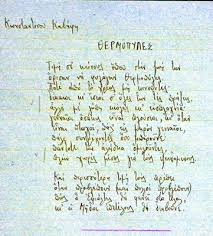 Κωνσταντίνου Καβάφη
ΘΕΡΜΟΠΥΛΕΣ
Τιμή σε εκείνους όπου στην ζωή των
ώρισαν και φυλάγουν Θερμοπύλες.
Ποτέ από το χρέος μη κινούντες·
δίκαιοι κ' ίσιοι σ' όλες των τες πράξεις,
αλλά με λύπη κιόλας κ' ευσπλαχνία·
γενναίοι οσάκις είναι πλούσιοι, κι όταν
είναι πτωχοί, πάλ' εις μικρόν γενναίοι,
πάλι συντρέχοντες όσο μπορούνε·
πάντοτε την αλήθεια ομιλούντες,
πλην χωρίς μίσος για τους ψευδομένους.
Και περισσότερη τιμή τους πρέπει
όταν προβλέπουν (και πολλοί προβλέπουν)
πως ο Εφιάλτης θα φανεί στο τέλος,
κ' οι Μήδοι επιτέλους θα διαβούνε.